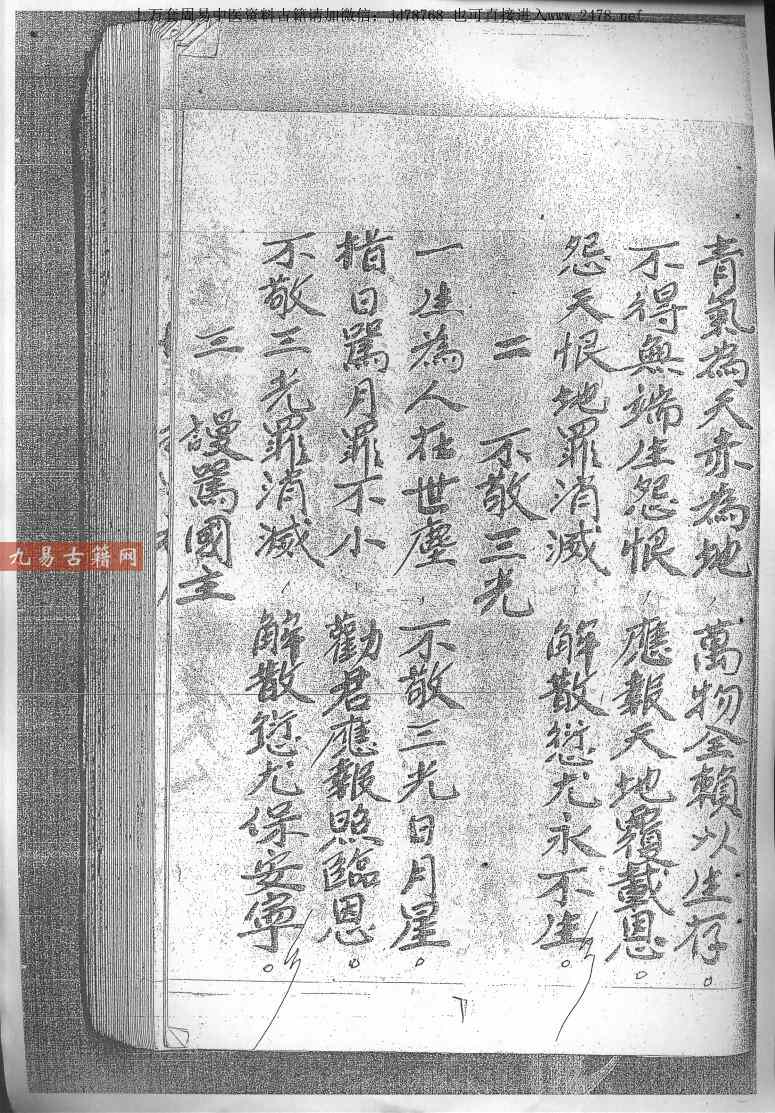 十万套周易中医资料古籍请加微信：jd78768 也可直接进入www.2478.net
青氣為天赤為地，萬物全賴以生存。
不得無端生怨恨，應報天地覆載恩。
怨天恨地罪消滅，解散愆尤永不生。
二 不敬三光
一生為人在世塵，不敬三光日月星。
指日罵月罪不小，勸君應報照臨恩。
不敬三光罪消滅，解散愆尤保安寧。
三 謾罵國主
九易古籍网